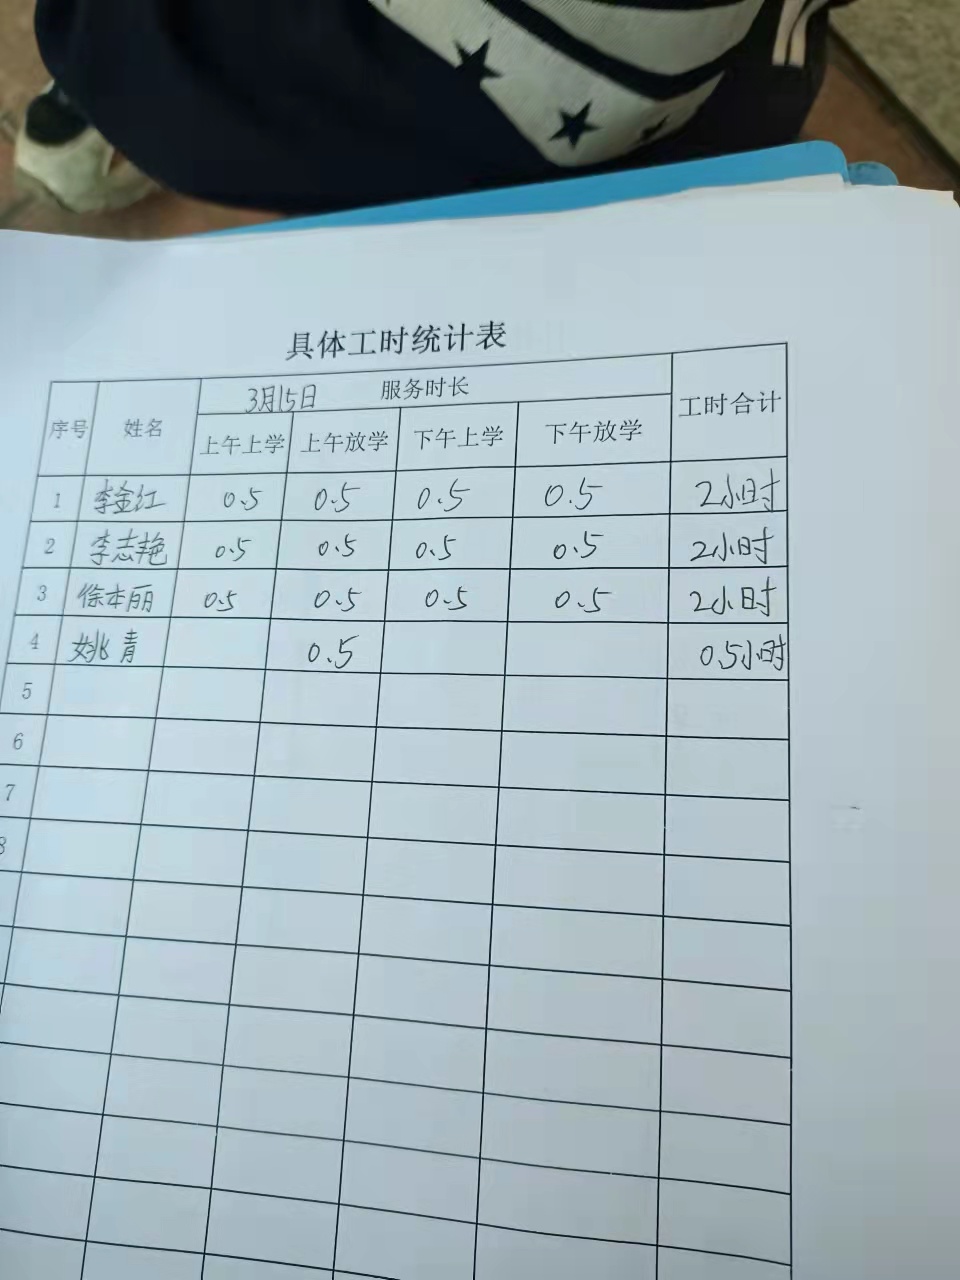 具体工时统计表
序号 姓名 3月15日 服务时长 工时合计
上午上学 上午放学 下午上学 下午放学
1 李金红 0.5 0.5 0.5 0.5 2小时
2 李志艳 0.5 0.5 0.5 0.5 2小时
3 徐本丽 0.5 0.5 0.5 0.5 2小时
4 姚青 0.5 0.5小时
5
6
7
8